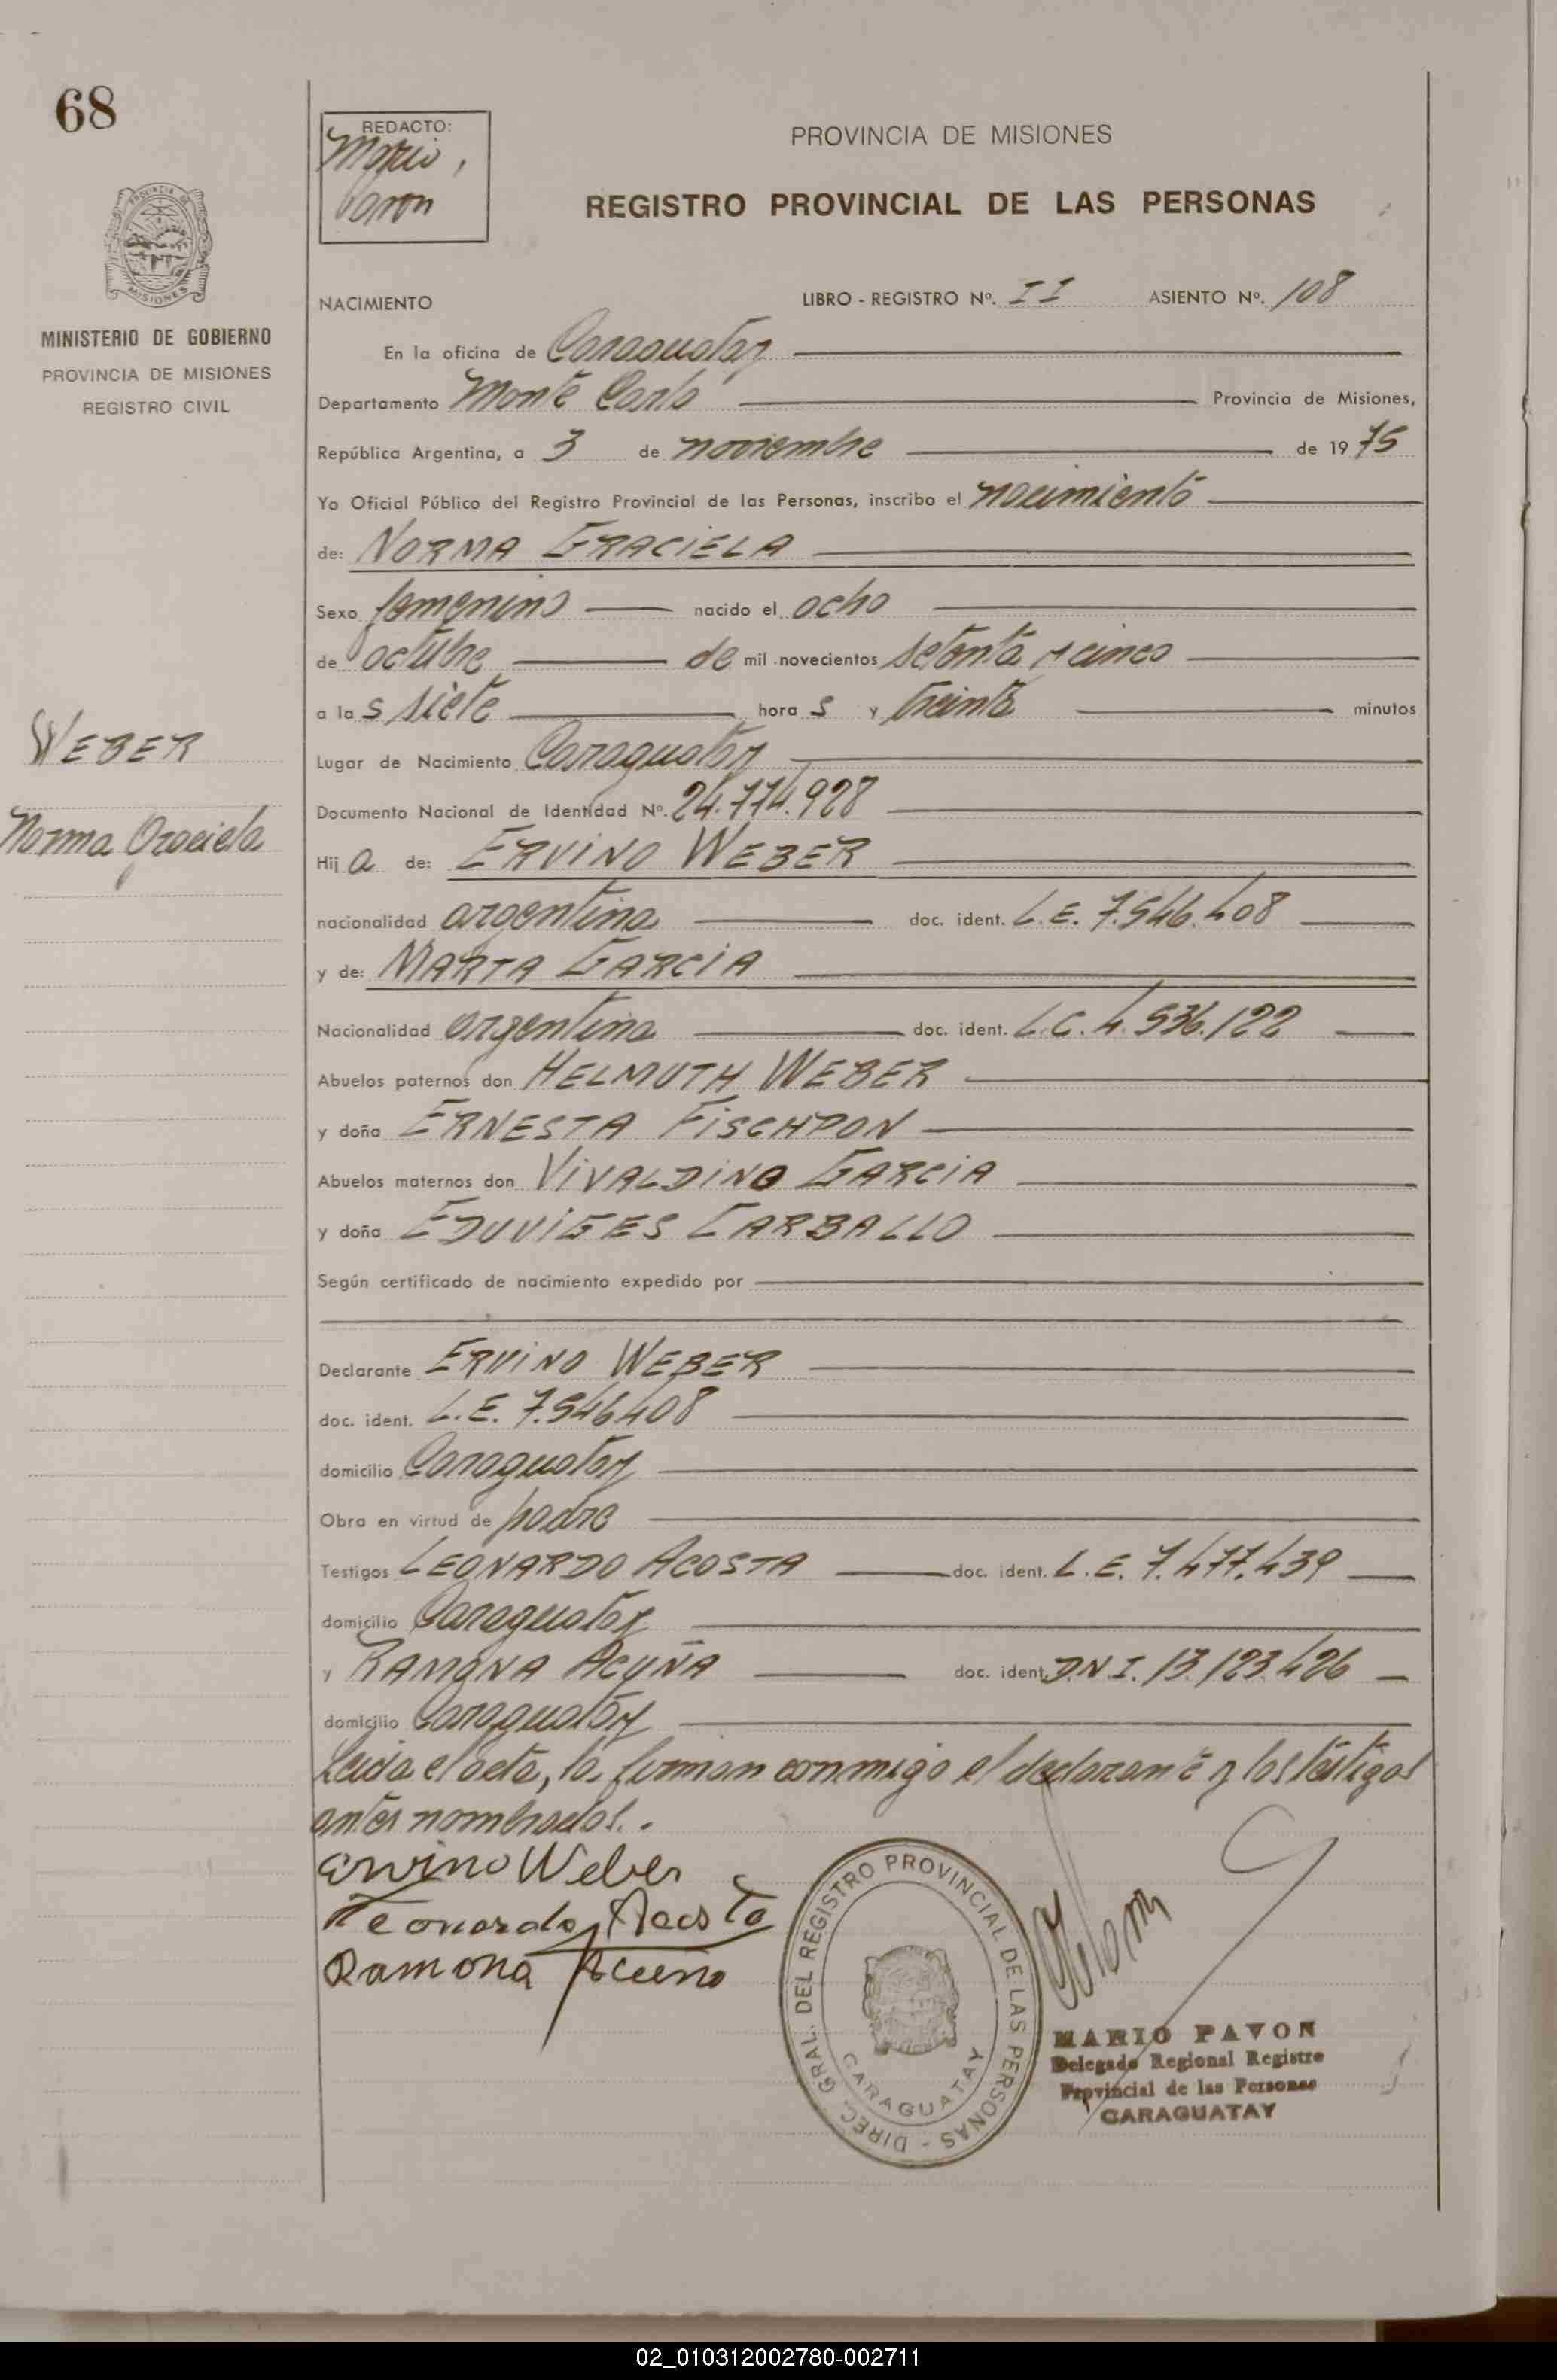 68
REDACTO:
Mario
Pavon
PROVINCIA DE MISIONES
REGISTRO PROVINCIAL DE LAS PERSONAS
PROVINCIA DE
MISIONES
MINISTERIO DE GOBIERNO
PROVINCIA DE MISIONES
REGISTRO CIVIL
NACIMIENTO
LIBRO - REGISTRO Nº. II ASIENTO Nº. 108
En la oficina de Caraguatay
Departamento Monte Carlo Provincia de Misiones,
República Argentina, a 3 de noviembre de 1975
Yo Oficial Público del Registro Provincial de las Personas, inscribo el nacimiento
de: NORMA GRACIELA
Sexo femenino nacido el ocho
de octubre de mil novecientos setenta y cinco
a las siete horas y treinta minutos
WEBER
Lugar de Nacimiento Caraguatay
Documento Nacional de Identidad Nº. 24.774.928
Norma Graciela
Hija de: ERVINO WEBER
nacionalidad argentina doc. ident. L.E. 7.546.408
y de: MARTA GARCIA
Nacionalidad argentina doc. ident. L.C. 4.536.122
Abuelos paternos don HELMUTH WEBER
y doña ERNESTA FISCHPON
Abuelos maternos don VIVALDINO GARCIA
y doña EDUVIGES CARBALLO
Según certificado de nacimiento expedido por
Declarante ERVINO WEBER
doc. ident. L.E. 7.546408
domicilio Caraguatay
Obra en virtud de padre
Testigos LEONARDO ACOSTA doc. ident. L.E. 7.477.439
domicilio Caraguatay
y RAMONA ACUÑA doc. ident. D.N.I. 13.123.426
domicilio Caraguatay
Leida el acta, la firman conmigo el declarante y los testigos
antes nombrados..
Ervino Weber
Leonardo Acosta
Ramona Acuña
DIREC. GRAL. DEL REGISTRO PROVINCIAL DE LAS PERSONAS -
CARAGUATAY
MARIO PAVON
Delegado Regional Registro
Provincial de las Personas
CARAGUATAY
02_010312002780-002711